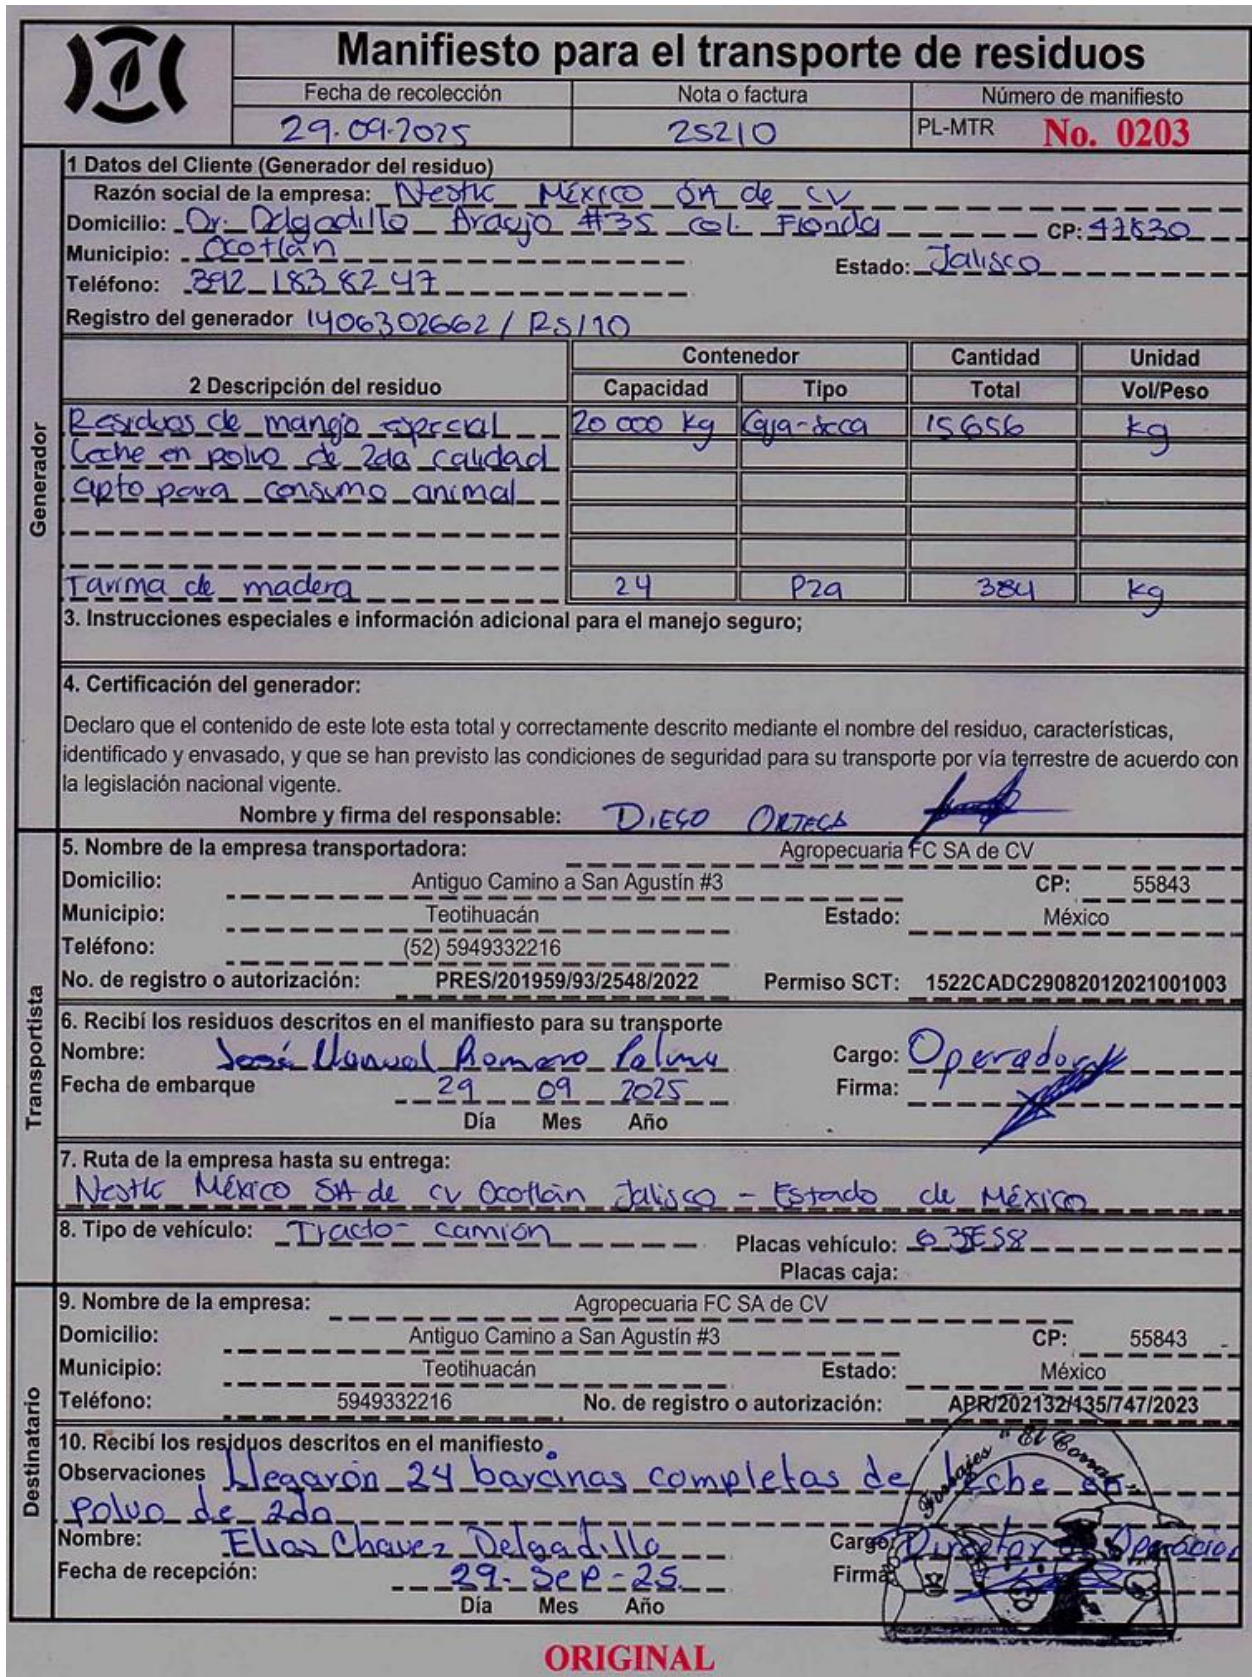 Manifiesto para el transporte de residuos
Fecha de recolección Nota o factura Número de manifiesto
29.09.2025 25210 PL-MTR No. 0203
Generador
1 Datos del Cliente (Generador del residuo)
Razón social de la empresa: Nestle México SA de CV
Domicilio: Dr. Delgadillo Araujo #35 col. Florida CP: 47830
Municipio: Ocotlán
Estado: Jalisco
Teléfono: 392 183 82 47
Registro del generador 1406302662 / RS/10
Contenedor Cantidad Unidad
2 Descripción del residuo Capacidad Tipo Total Vol/Peso
Residuos de manejo especial 20 000 kg Caja-seca 15656 kg
Leche en polvo de 2da calidad
apto para consumo animal
Tarima de madera 24 Pza 384 kg
3. Instrucciones especiales e información adicional para el manejo seguro;
4. Certificación del generador:
Declaro que el contenido de este lote esta total y correctamente descrito mediante el nombre del residuo, características,
identificado y envasado, y que se han previsto las condiciones de seguridad para su transporte por vía terrestre de acuerdo con
la legislación nacional vigente.
Nombre y firma del responsable: DIEGO ORTEGA
Transportista
5. Nombre de la empresa transportadora: Agropecuaria FC SA de CV
Domicilio: Antiguo Camino a San Agustín #3 CP: 55843
Municipio: Teotihuacán Estado: México
Teléfono: (52) 5949332216
No. de registro o autorización: PRES/201959/93/2548/2022 Permiso SCT: 1522CADC29082012021001003
6. Recibí los residuos descritos en el manifiesto para su transporte
Nombre: José Manuel Romero Palma Cargo: Operador
Fecha de embarque 29 09 2025 Firma:
Día Mes Año
7. Ruta de la empresa hasta su entrega:
Nestle México SA de CV Ocotlán Jalisco - Estado de México
8. Tipo de vehículo: Tracto-camión Placas vehículo:
Placas caja:
Destinatario
9. Nombre de la empresa: Agropecuaria FC SA de CV
Domicilio: Antiguo Camino a San Agustín #3 CP: 55843
Municipio: Teotihuacán Estado: México
Teléfono: 5949332216 No. de registro o autorización: APR/202132/135/747/2023
10. Recibí los residuos descritos en el manifiesto
Forrajes "El Corral"
Observaciones Llegaron 24 barcinas completas de leche en
polvo de 2da
Nombre: Elias Chavez Delgadillo Cargo: Director Operacion
Fecha de recepción: 29-Sep-25 Firma:
Día Mes Año
ORIGINAL